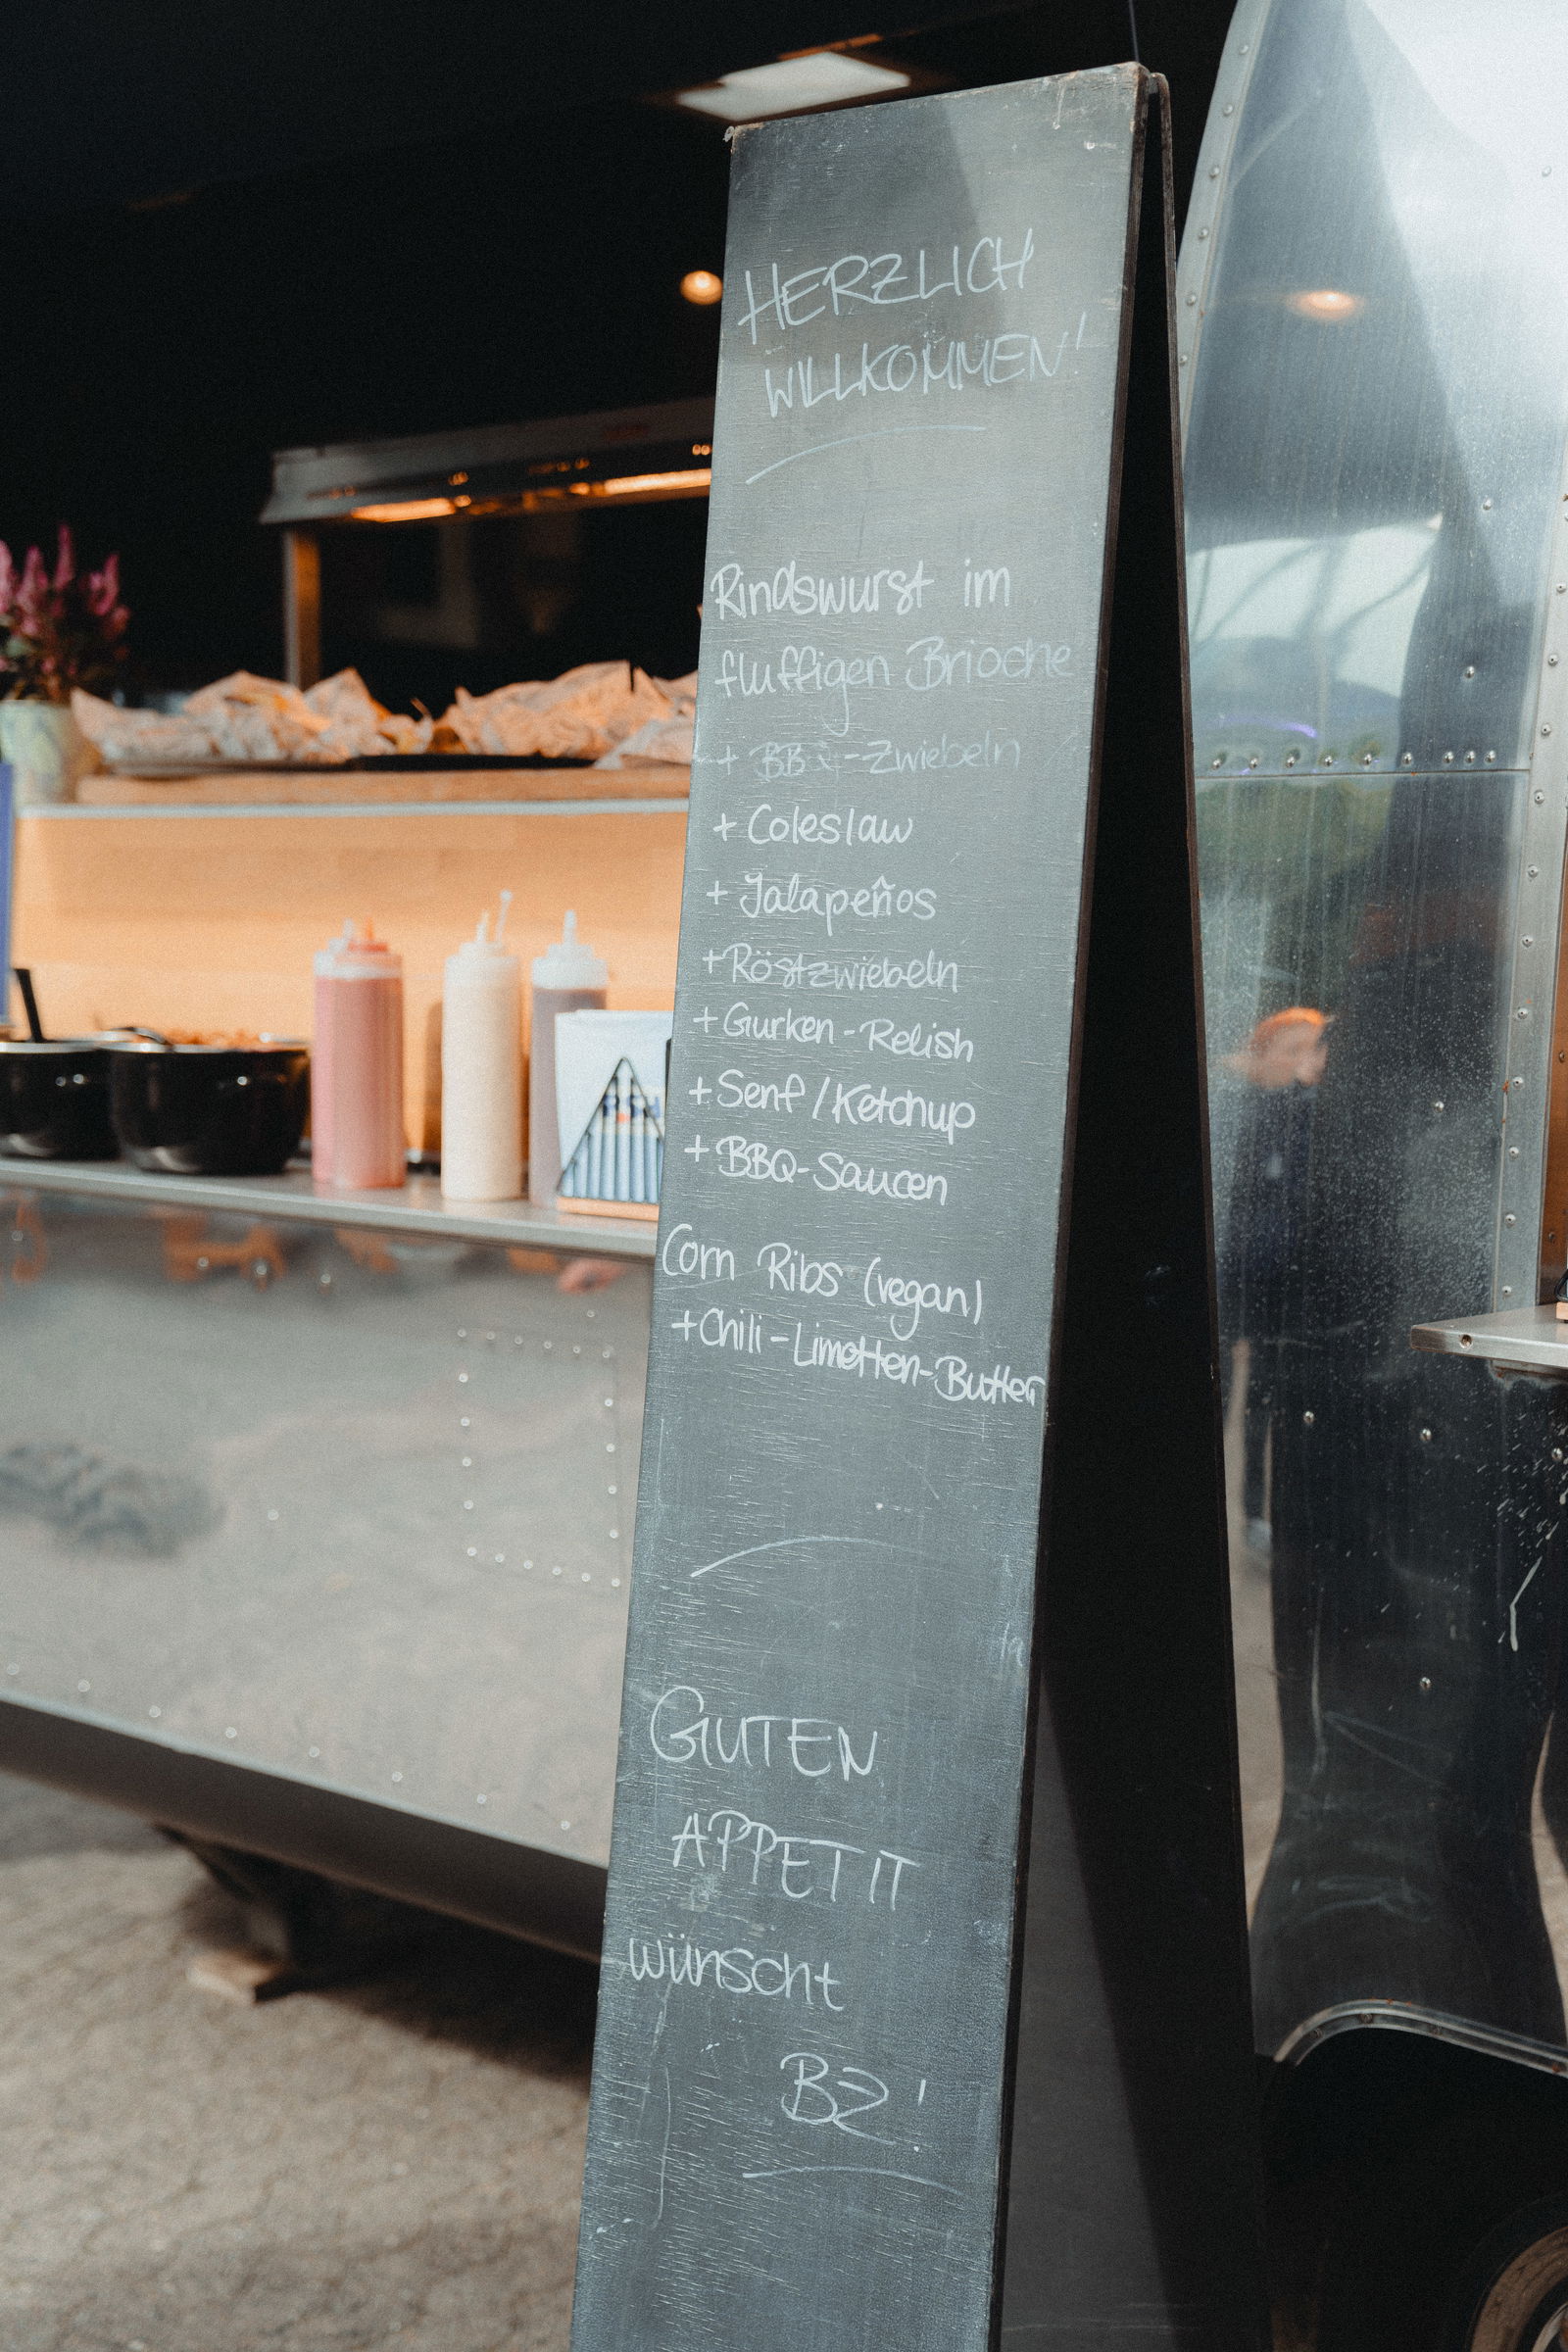 HERZLICH
WILLKOMMEN!
Rindswurst im
fluffigen Brioche
+ BBQ-Zwiebeln
+ Coleslaw
+ Jalapeños
+ Röstzwiebeln
+ Gurken-Relish
+ Senf/Ketchup
+ BBQ-Saucen
Corn Ribs (vegan)
+ Chili-Limetten-Butter
GUTEN
APPETIT
wünscht
BZ!